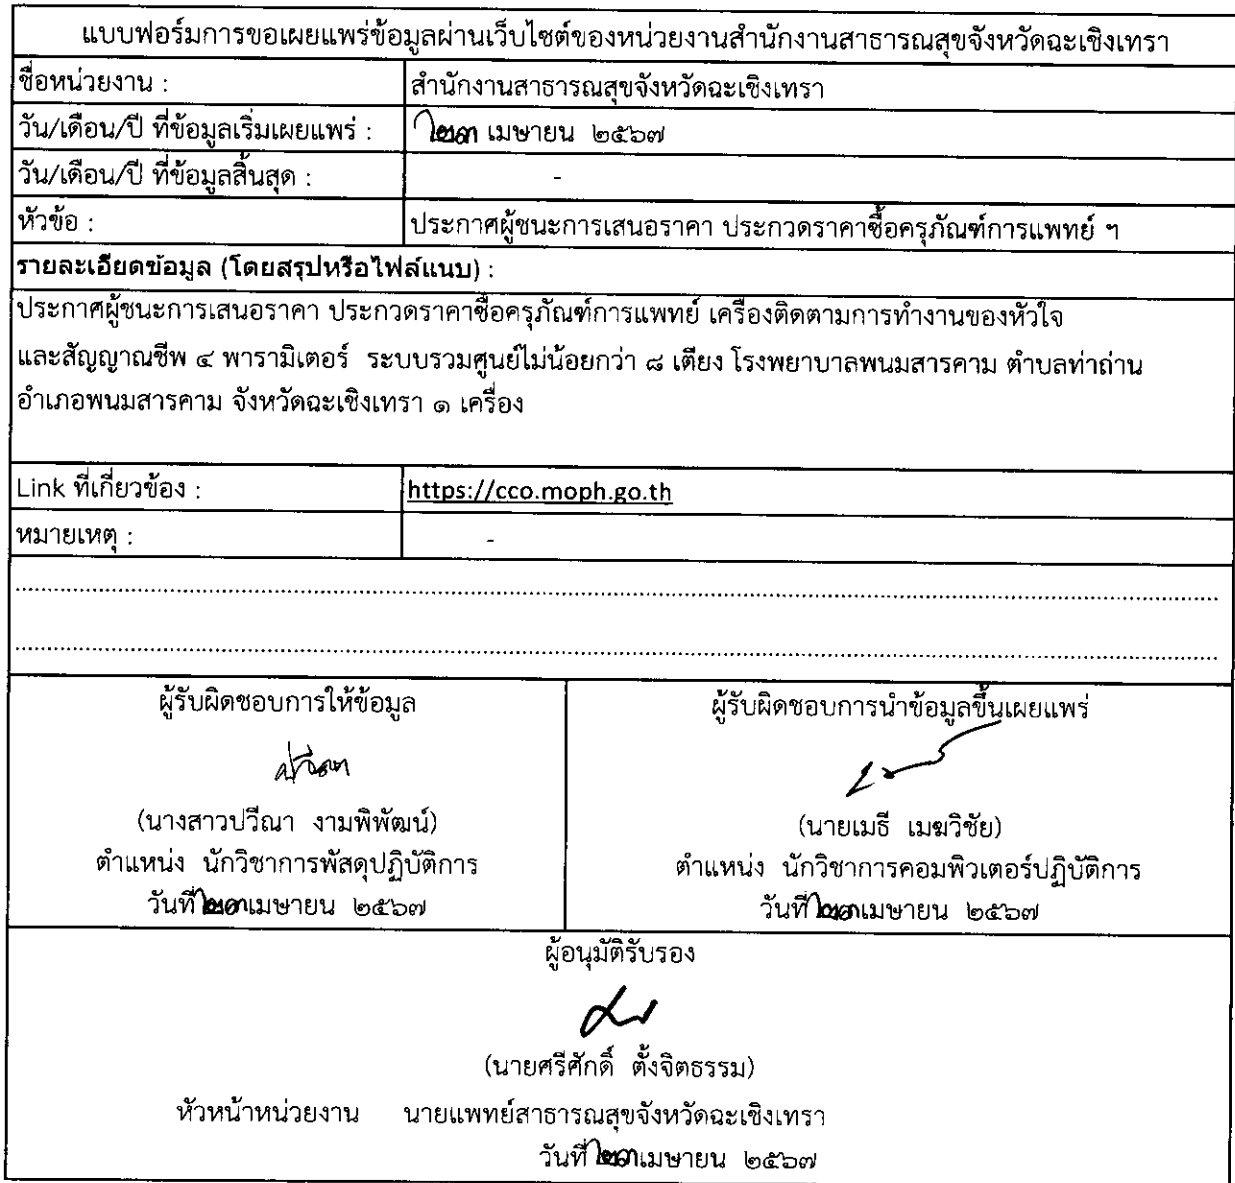 แบบฟอร์มการขอเผยแพร่ข้อมูลผ่านเว็บไซต์ของหน่วยงานสำนักงานสาธารณสุขจังหวัดฉะเชิงเทรา
ชื่อหน่วยงาน : สำนักงานสาธารณสุขจังหวัดฉะเชิงเทรา
วัน/เดือน/ปี ที่ข้อมูลเริ่มเผยแพร่ : ๒๓ เมษายน ๒๕๖๗
วัน/เดือน/ปี ที่ข้อมูลสิ้นสุด : -
หัวข้อ : ประกาศผู้ชนะการเสนอราคา ประกวดราคาซื้อครุภัณฑ์การแพทย์ ฯ
รายละเอียดข้อมูล (โดยสรุปหรือไฟล์แนบ) :
ประกาศผู้ชนะการเสนอราคา ประกวดราคาซื้อครุภัณฑ์การแพทย์ เครื่องติดตามการทำงานของหัวใจ
และสัญญาณชีพ ๔ พารามิเตอร์ ระบบรวมศูนย์ไม่น้อยกว่า ๘ เตียง โรงพยาบาลพนมสารคาม ตำบลท่าถ่าน
อำเภอพนมสารคาม จังหวัดฉะเชิงเทรา ๑ เครื่อง
Link ที่เกี่ยวข้อง : https://cco.moph.go.th
หมายเหตุ : -
ผู้รับผิดชอบการให้ข้อมูล ผู้รับผิดชอบการนำข้อมูลขึ้นเผยแพร่
(นางสาวปวีณา งามพิพัฒน์) (นายเมธี เมฆวิชัย)
ตำแหน่ง นักวิชาการพัสดุปฏิบัติการ ตำแหน่ง นักวิชาการคอมพิวเตอร์ปฏิบัติการ
วันที่ ๒๓ เมษายน ๒๕๖๗ วันที่ ๒๓ เมษายน ๒๕๖๗
ผู้อนุมัติรับรอง
(นายศรีศักดิ์ ตั้งจิตธรรม)
หัวหน้าหน่วยงาน นายแพทย์สาธารณสุขจังหวัดฉะเชิงเทรา
วันที่ ๒๓ เมษายน ๒๕๖๗